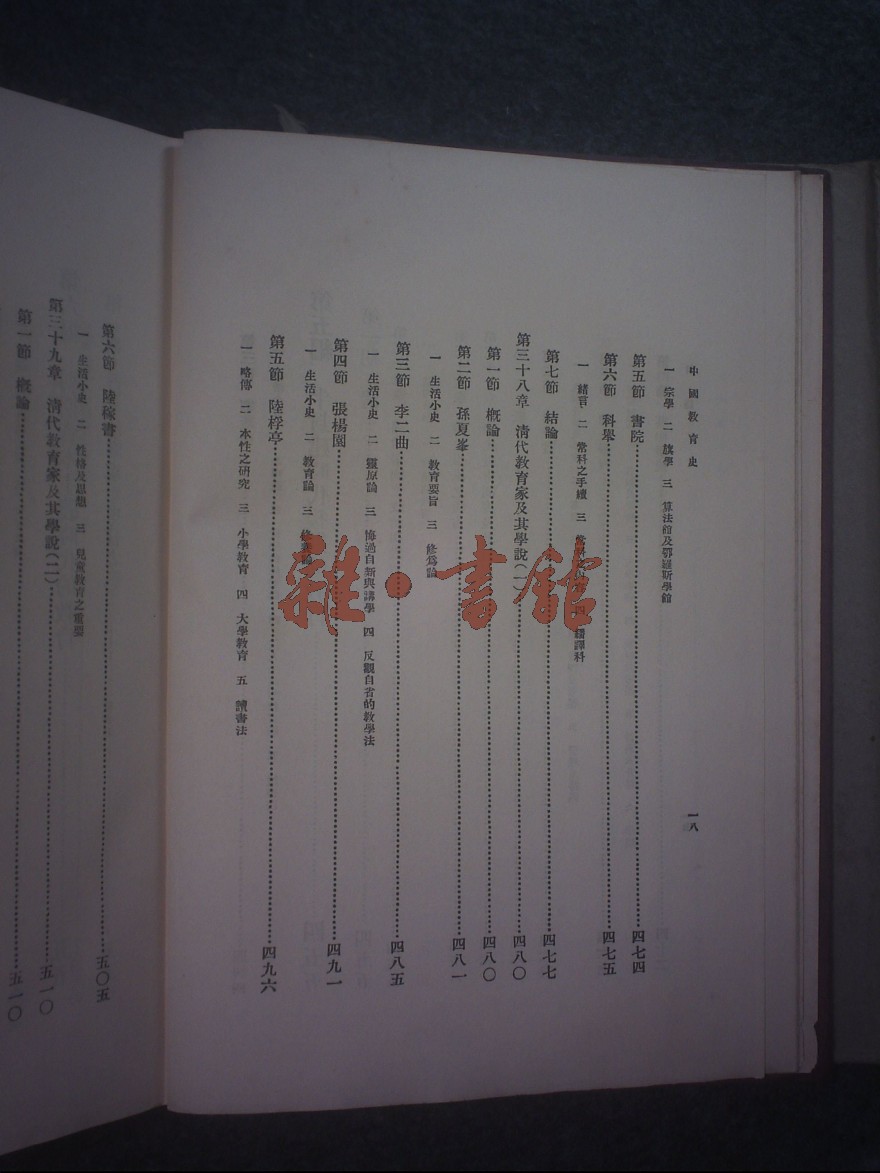 中國教育史
一八
一 宗學 二 旗學 三 算法館及鄂羅斯學館
第五節 書院……四七四
第六節 科舉……四七五
一 緒言 二 常科之手續 三 四 繙譯科
第七節 結論……四七七
第三十八章 清代教育家及其學說(一)……四八〇
第一節 概論……四八〇
第二節 孫夏峯……四八一
一 生活小史 二 教育要旨 三 修爲論
第三節 李二曲……四八五
一 生活小史 二 靈原論 三 悔過自新與講學 四 反觀自省的教學法
第四節 張楊園……四九一
一 生活小史 二 教育論 三 修養論
第五節 陸桴亭……四九六
一 略傳 二 本性之研究 三 小學教育 四 大學教育 五 讀書法
第六節 陸稼書……五〇五
一 生活小史 二 性格及思想 三 兒童教育之重要
第三十九章 清代教育家及其學說(二)……五一〇
第一節 概論……五一〇
雜·書館